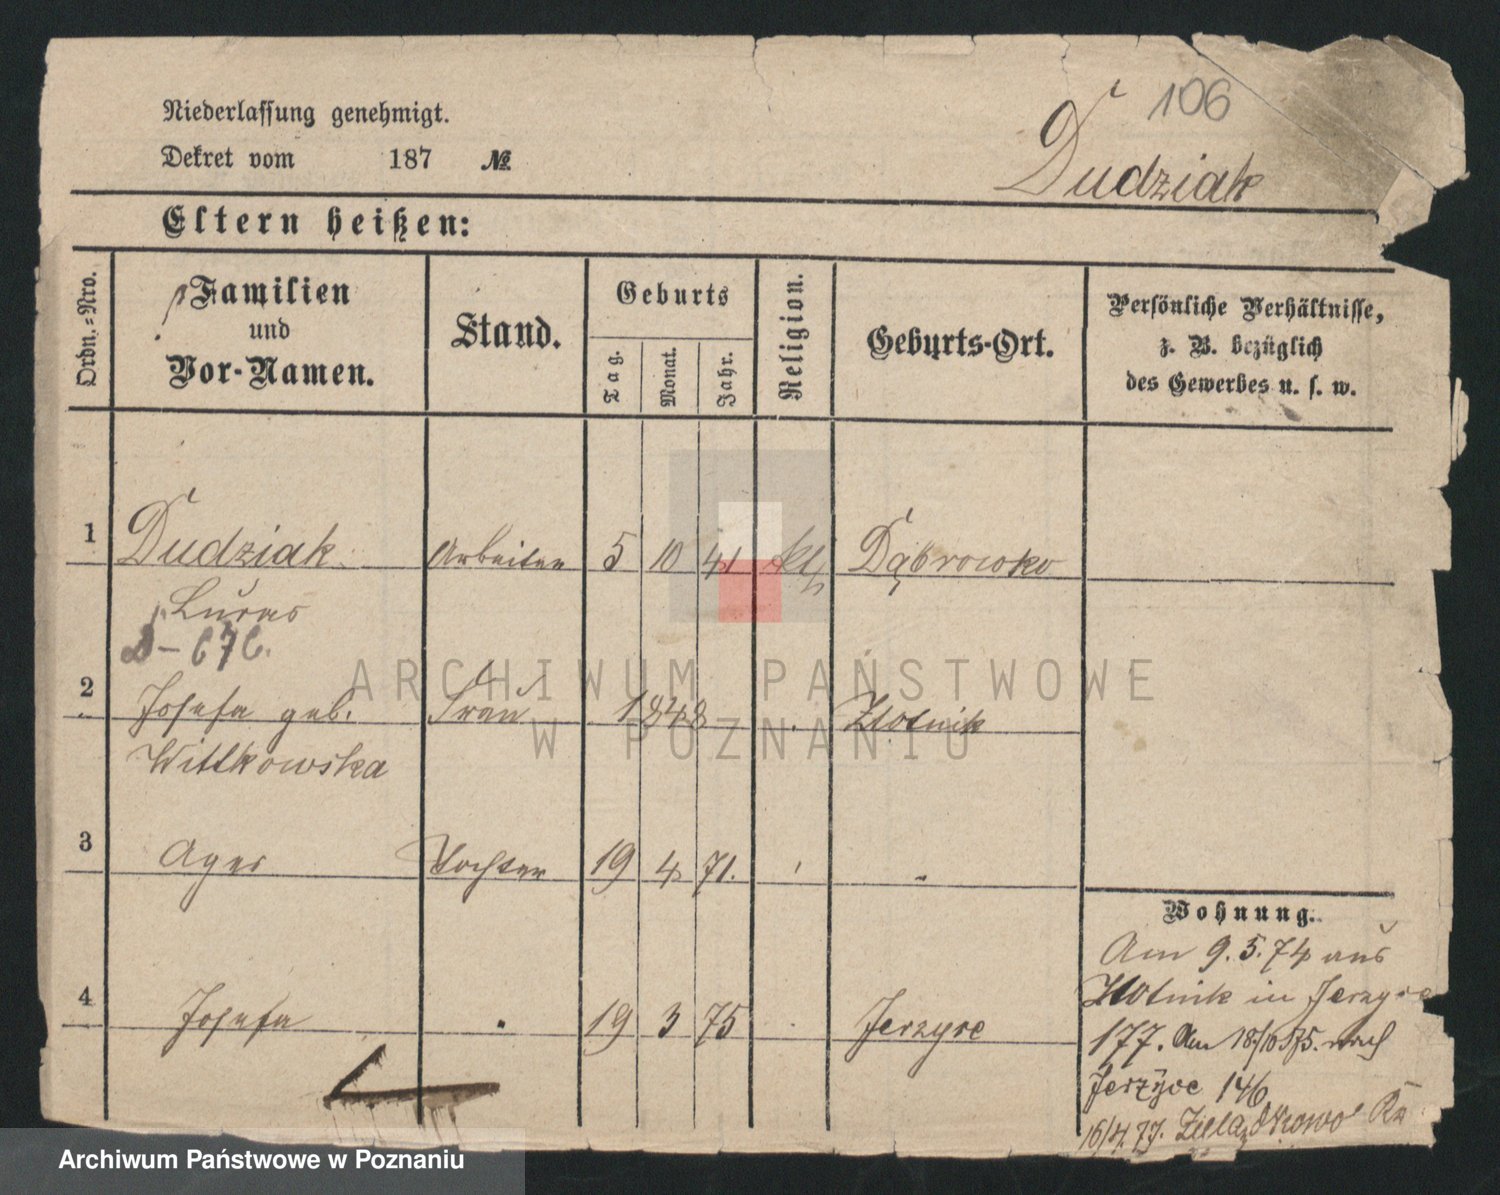 106
Niederlassung genehmigt.
Dekret vom 187 №
Dudziak
Eltern heißen:
Ordn.-Nro.
Familien
und
Vor-Namen.
Stand.
Geburts
Tag.
Monat.
Jahr.
Religion.
Geburts-Ort.
Persönliche Verhältnisse,
z. B. bezüglich
des Gewerbes u. s. w.
1 Dudziak Arbeiter 5 10 41 ktl Dąbrowko
Lucas
2 Josefa geb. Frau 1848 Zlotnik
Wittkowska
3 Agnes Tochter 19 4 71. "
4 Josefa " 19 3 75 Jerzyce
Wohnung.
Am 9.5.74 aus
Zlotnik in Jerzyce
177. Am 18/10 75. nach
Jerzyce 146
16/4 77.
ARCHIWUM PAŃSTWOWE
W POZNANIU
Archiwum Państwowe w Poznaniu